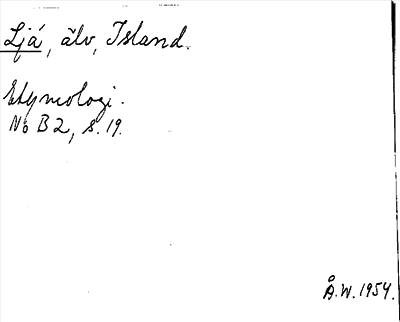 Ljá, älv, Island.
Etymologi.
No B2, s. 19.
Å.W. 1954.